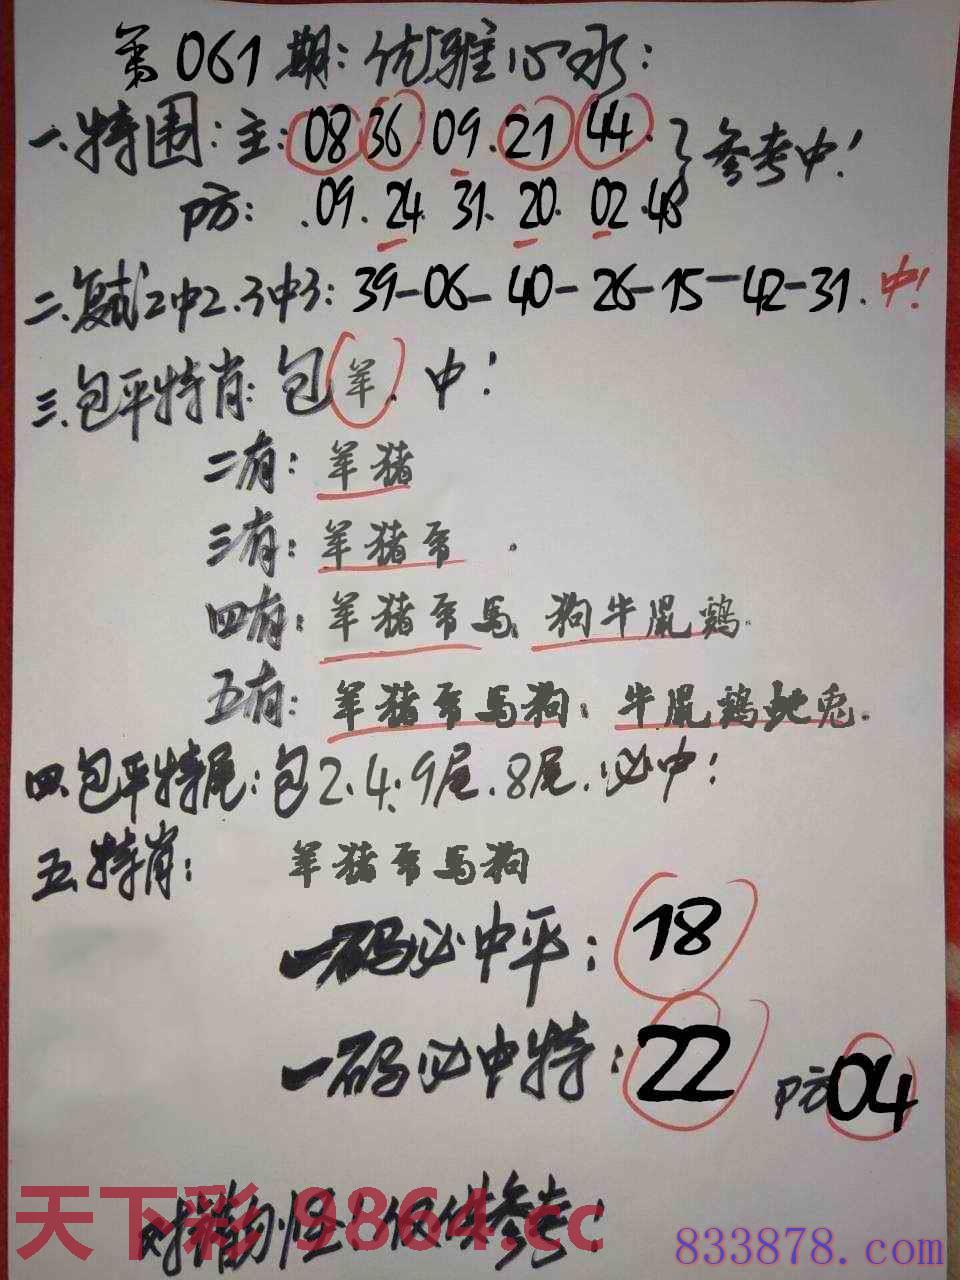 第061期:优雅心水:
一.特围:主:08 36 09.21 44.}参考中!
防: .09.24 31.20.02.48
二.复式2中2.3中3: 39-06-40-26-15-42-31.中!
三.包平特肖:包羊.中!
二有:羊猪
三有:羊猪
四有:羊猪 马.狗牛鼠鸡.
五有:羊猪 马狗:牛鼠鸡蛇兔.
四.包平特尾:包2.4.9尾.8尾.必中!
五.特肖: 羊猪 马狗
一码必中平:18
一码必中特:22 防04
天下彩 9864.cc
错勿怪!仅供参考!
833878.com